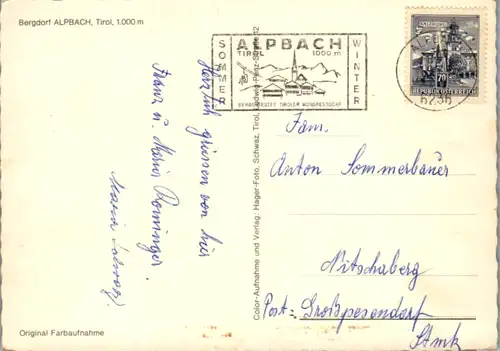 Bergdorf ALPBACH, Tirol, 1.000 m
SOMMER
ALPBACH
TIROL 1000 m
WINTER
REPUBLIK ÖSTERREICH
70
6236
Herzlich grüssen von hier
Franz u. Maria
Maria
Color-Aufnahme und Verlag: Hager-Foto, Schwaz, Tirol,
Fam.
Anton Sommerbauer
Nitschaberg
Post: Großpesendorf
Stmk
Original Farbaufnahme